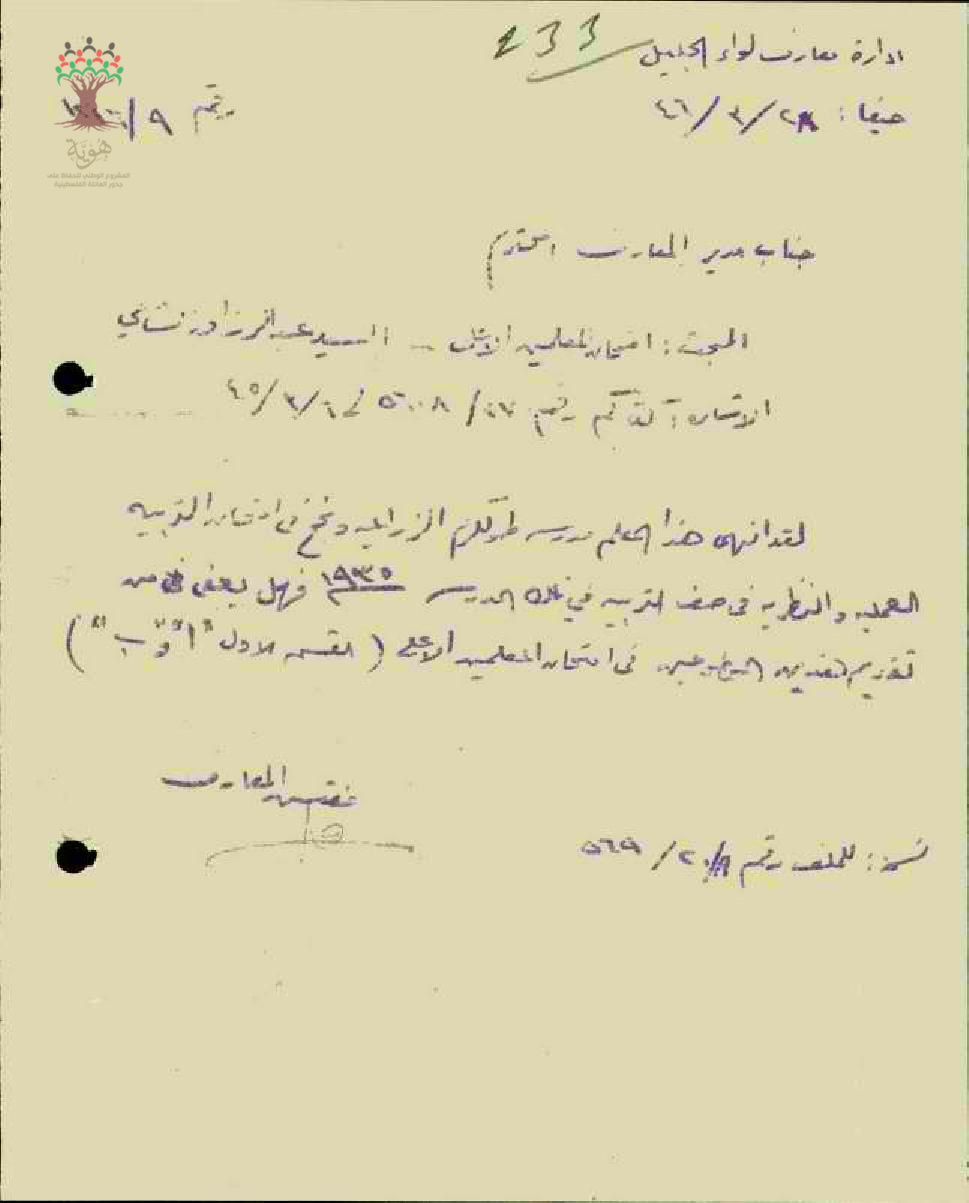 ادارة معارف لواء الجليل
133
حيفا: ٢٨/٣/٤٦
رقم ٩/
هوية
المشروع الوطني للحفاظ على
جذور العائلة الفلسطينية
جناب مدير المعارف المحترم
المبحث: امتحان المعلمين الاعلى - السيد عبد الرزاق
الاشارة: كتابكم رقم
لقد انهى هذا المعلم مدرسة طولكرم الزراعية ونجح في امتحان التربية
العملية والنظرية في صف التربية في تلك المدرسة سنة ١٩٣٥ فهل يعفى من
تقديم هذين الموضوعين في امتحان المعلمين الاعلى (القسم الاول "أ و ب")
مفتش المعارف
نسخة: للملف رقم